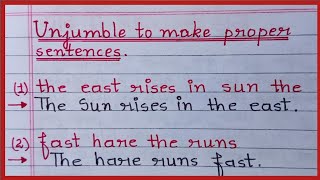 Unjumble to make proper
sentences.
(1) the east rises in sun the
→ The Sun rises in the east.
(2.) fast hare the runs
→ The hare runs fast.